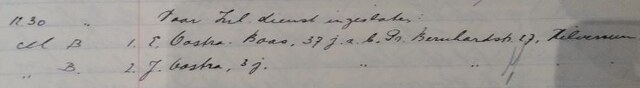 1230 " Voor Zel. dienst ingesloten:
M B 1. E. Oostra-Boas, 37 j. a. b. Pr. Bernhardstr 27, Hilversum
" B. 2. J. Oostra, 3 j. " " " "